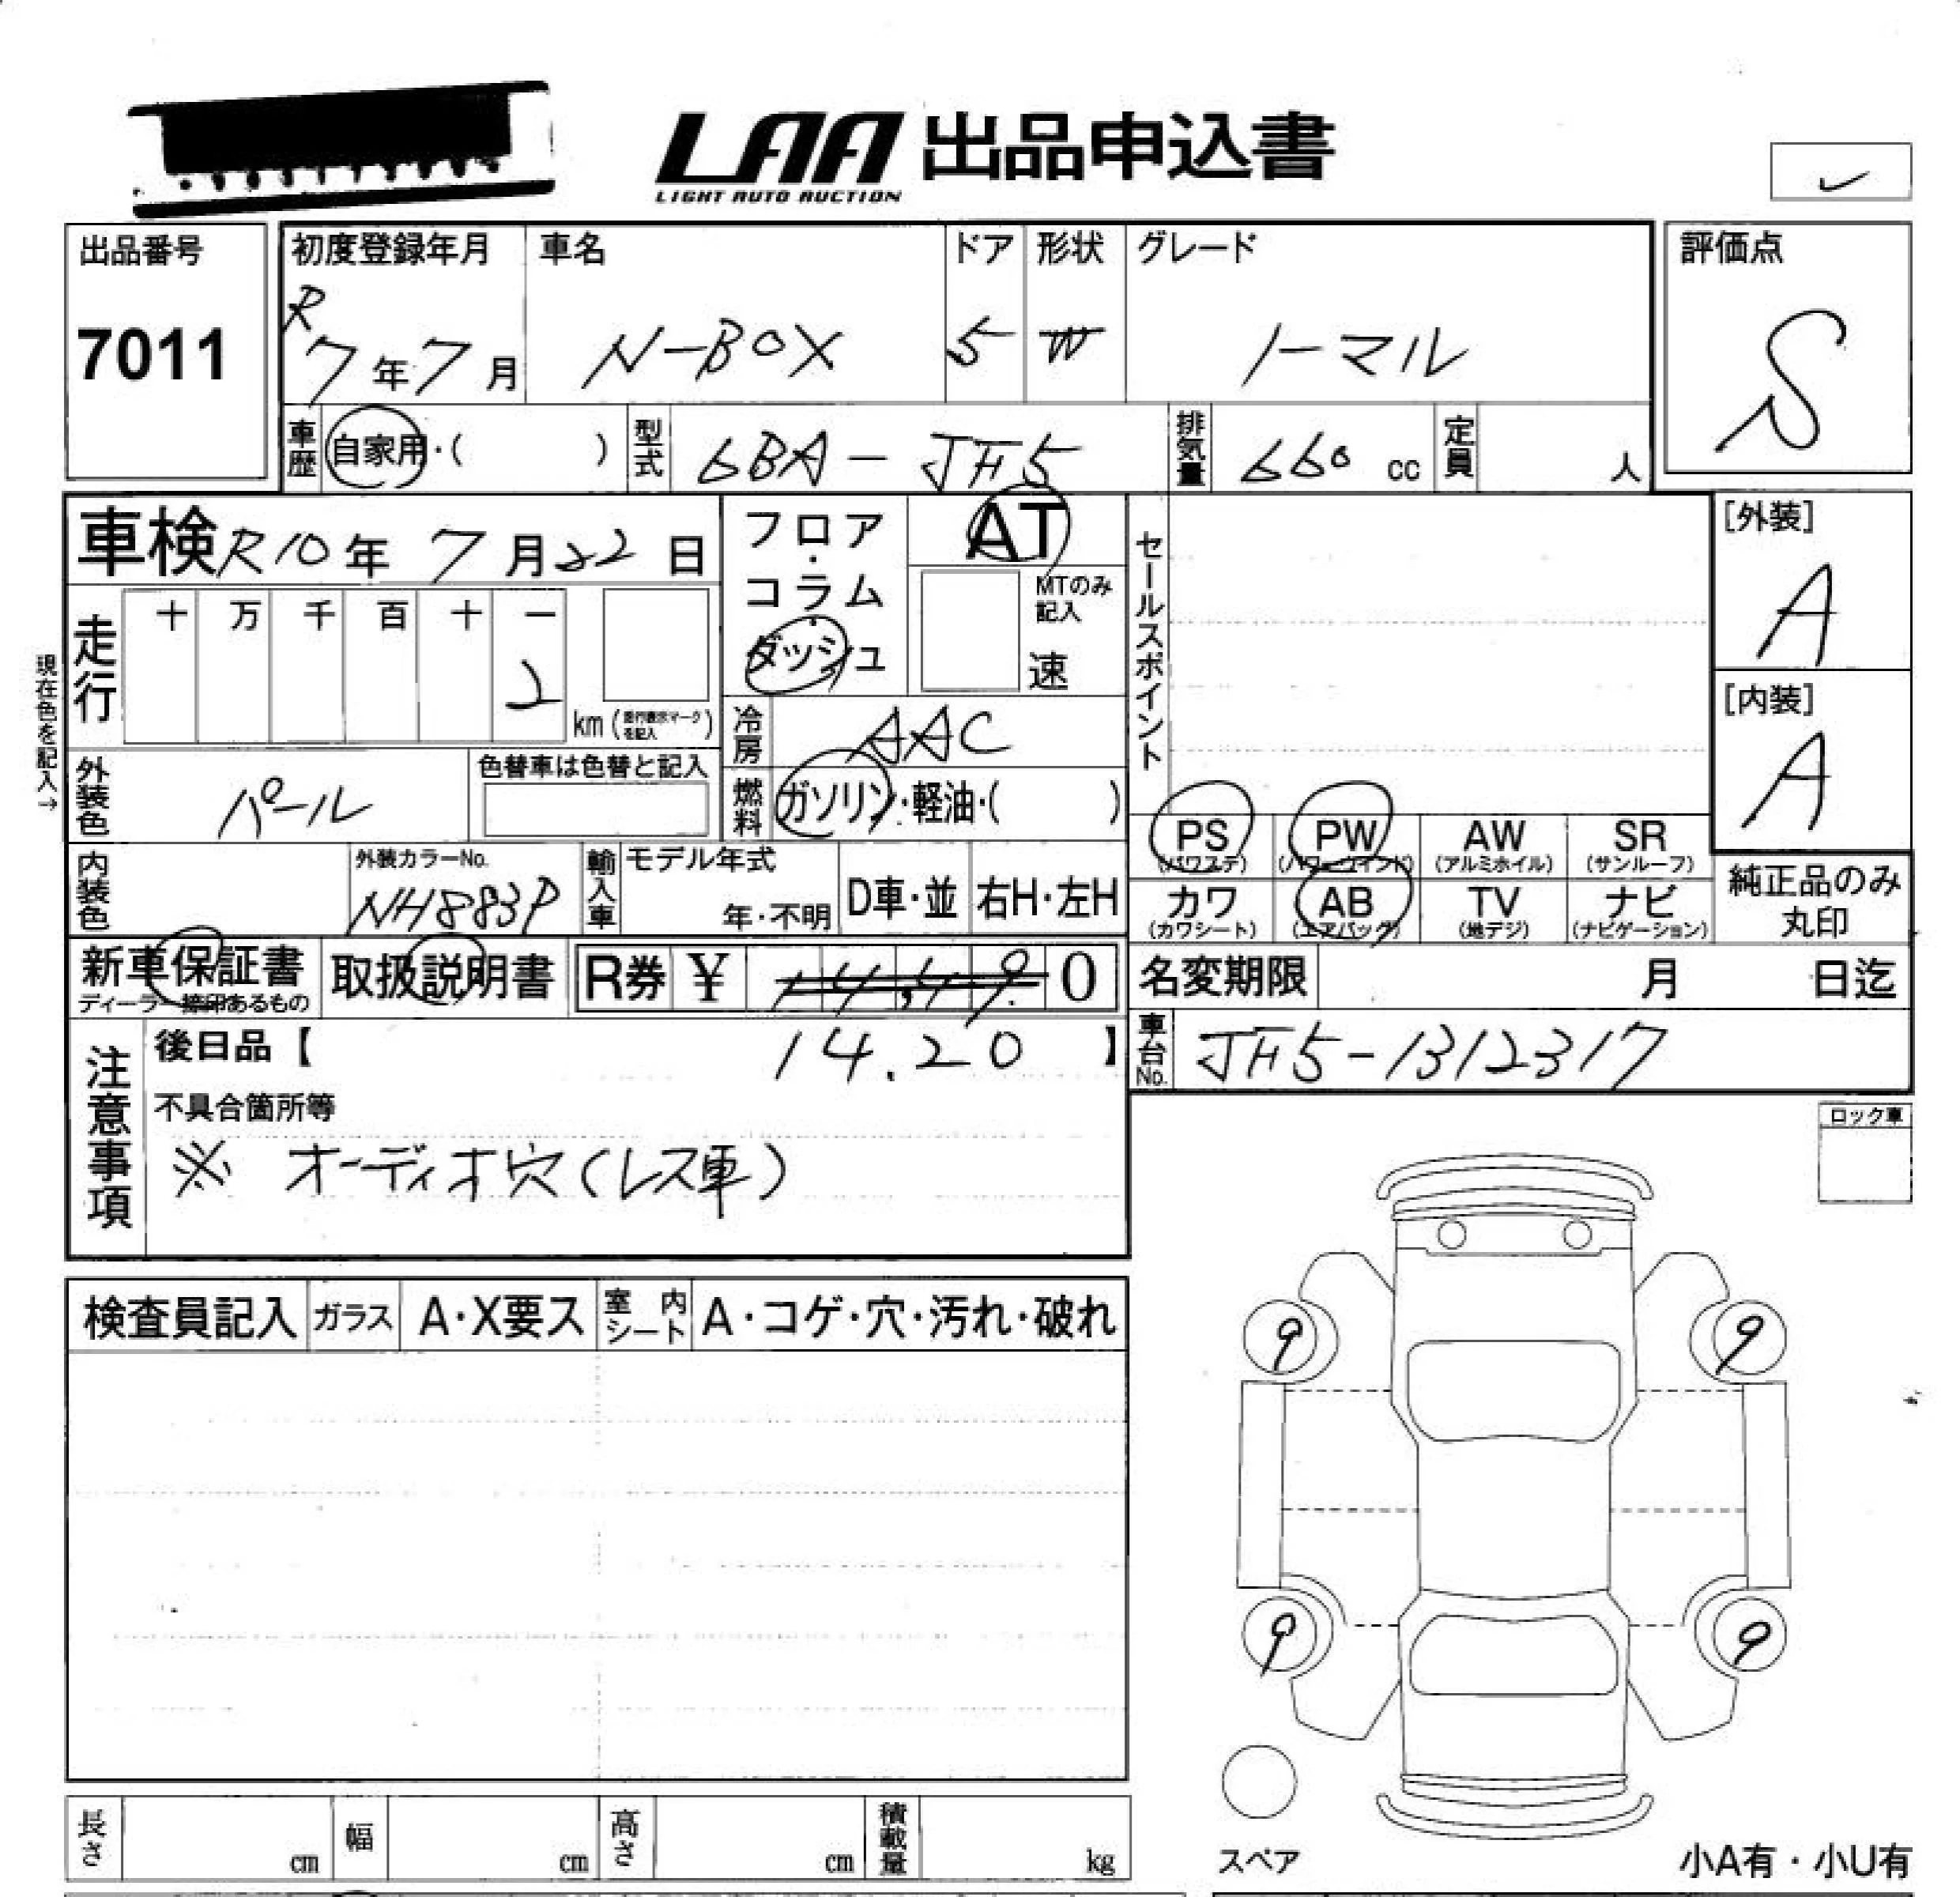 LAA 出品申込書
LIGHT AUTO AUCTION
出品番号 7011
初度登録年月 R7年7月
車名 N-BOX
ドア 5
形状 W
グレード ノーマル
評価点 S
車歴 自家用・( )
型式 6BA-JH5
排気量 660 cc
定員 人
車検 R10年 7月22日
フロア・コラム・ダッシュ
AT
MTのみ記入 速
セールスポイント
[外装] A
[内装] A
現在色を記入→
走行 十 万 千 百 十 一
2 km (走行表示マークを記入)
冷房 AAC
燃料 ガソリン・軽油・( )
外装色 パール
色替車は色替と記入
内装色
外装カラーNo. NH883P
輸入車 モデル年式 年・不明
D車・並 右H・左H
PS (パワステ) PW (パワーウインド) AW (アルミホイル) SR (サンルーフ)
カワ (カワシート) AB (エアバッグ) TV (地デジ) ナビ (ナビゲーション)
純正品のみ丸印
新車保証書 ディーラー捺印あるもの
取扱説明書
R券 ¥ 0
名変期限 月 日迄
車台No. JH5-1312317
注意事項
後日品【 14.20 】
不具合箇所等
※ オーディオ穴(レス車)
ロック車
検査員記入 ガラス A・X要ス 室内シート A・コゲ・穴・汚れ・破れ
9 9
9 9
スペア
小A有・小U有
長さ cm 幅 cm 高さ cm 積載量 kg